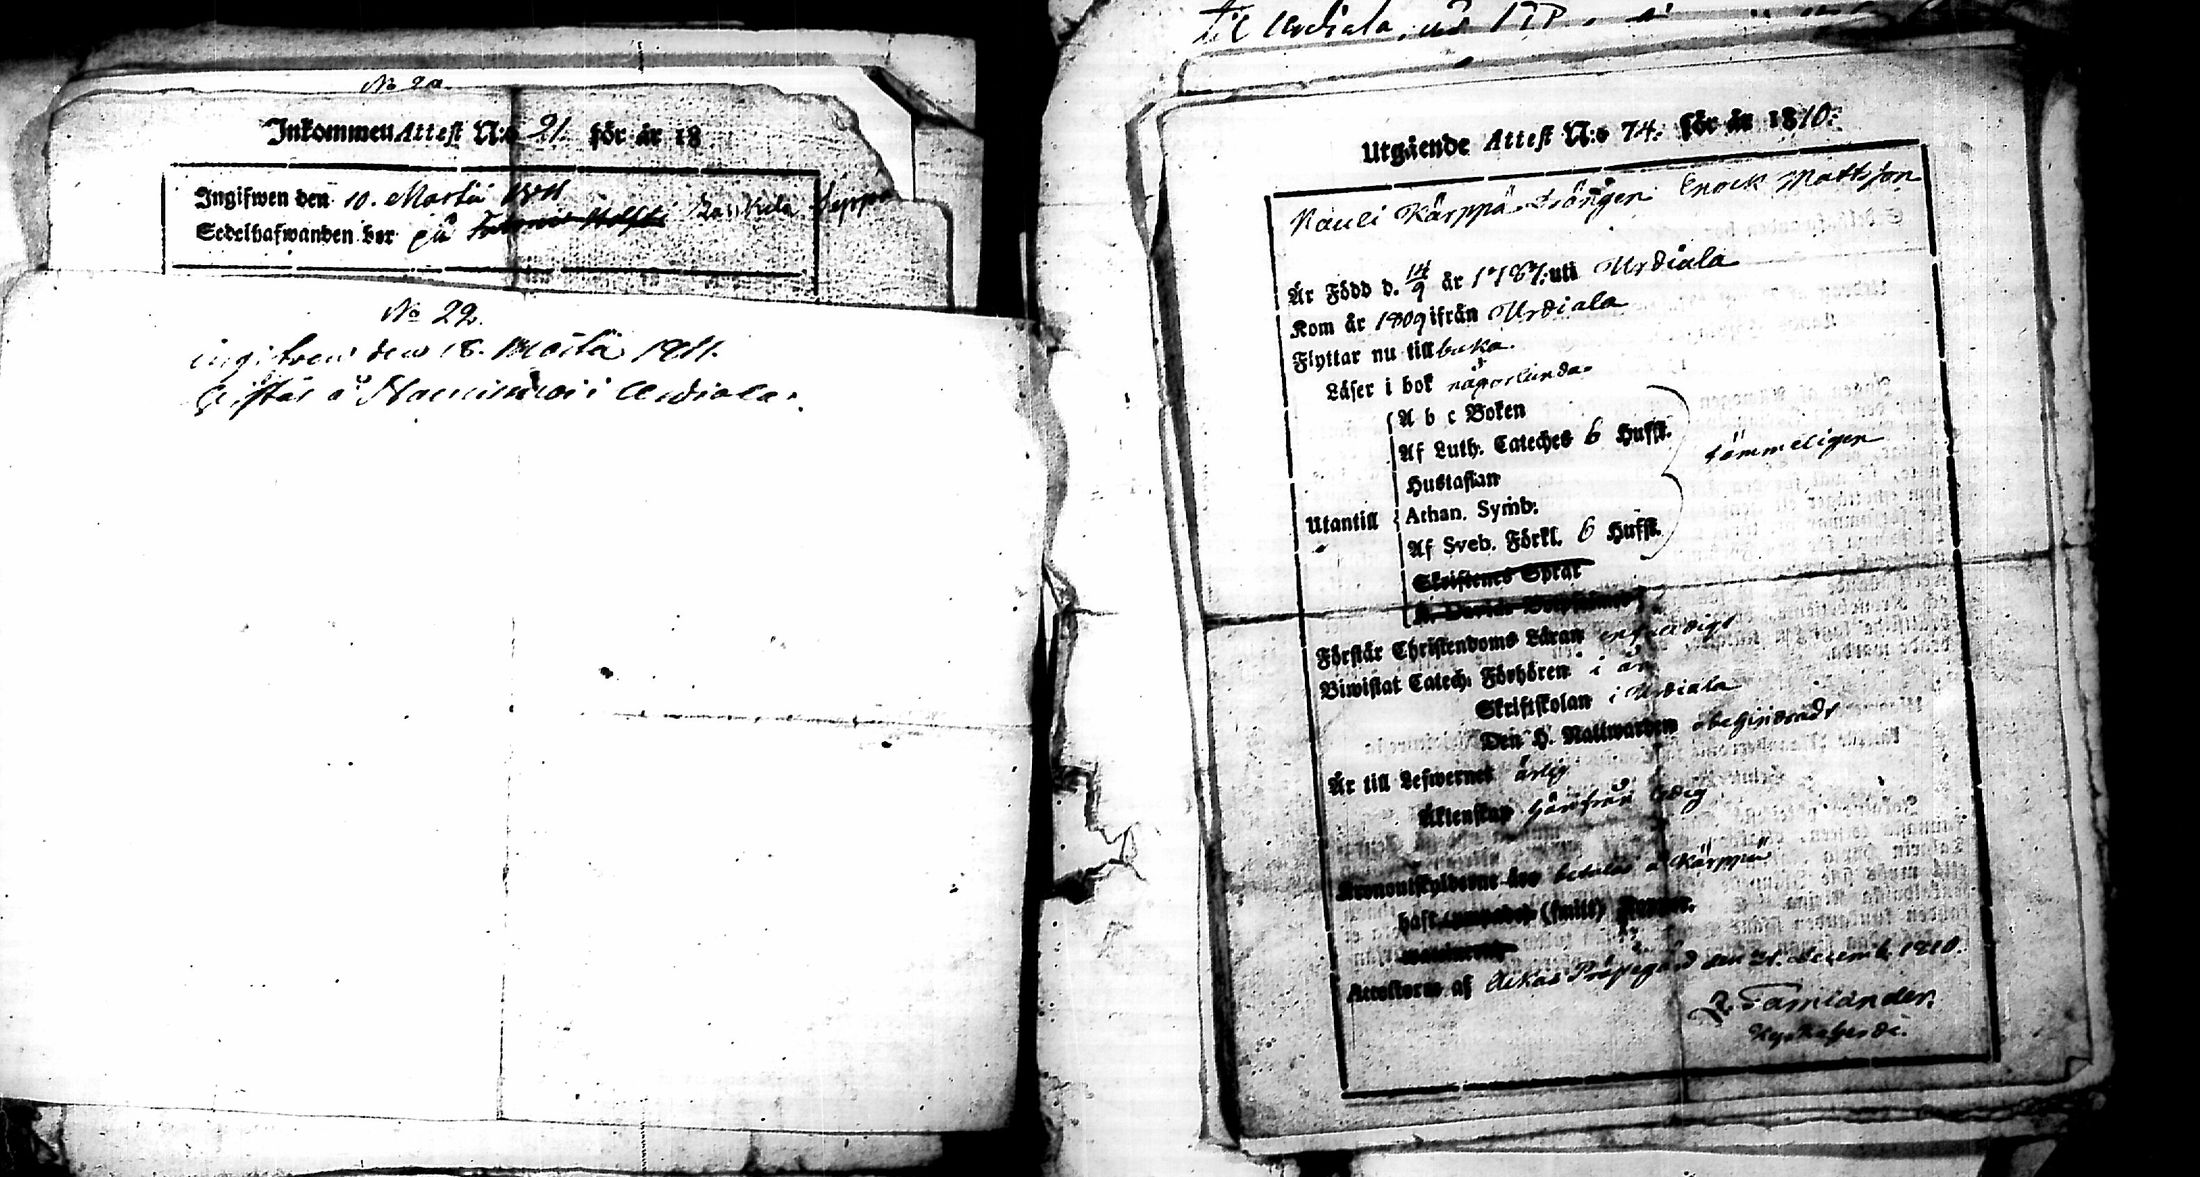 No 20.
Inkommen Attest N:o 21. för år 18
Ingifwen den 10. Martii 1811
Sedelhafwanden bor på Seppä
No 22.
ingifwen den 18. Martii 1811.
Giftas å i Urdiala.
til Urdiala,
Utgående Attest N:o 74. för år 1810:
Nauli Kärppä Drängen Enock Mattsson
Är Född d. 14/9 är 1787. uti Urdiala
Kom år 1809 ifrån Urdiala
Flyttar nu tillbaka.
Läser i bok någorlunda
A b c Boken
Af Luth. Cateches 6 Hufst.
tämmeligen
Hustaflan
Utantill
Athan. Symb.
Af Sveb. Förkl. 6 Hufst.
Skriftenes Sprak
K. Davids Botpsalmer
Förstår Christendoms Läran enfaldigt
Biwistat Catech. Förhören i år
Skriftskolan i Urdiala
Den H. Nattwarden obehindradt
Är till Lefwernet ärlig
Äktenskap härifrån ledig
Kronoutskylderne äro betalas å Kärppä
haft (smitt)
Attesteras af Ackas Prästegård den 21. Decemb. 1810.
Kyrkoherde.